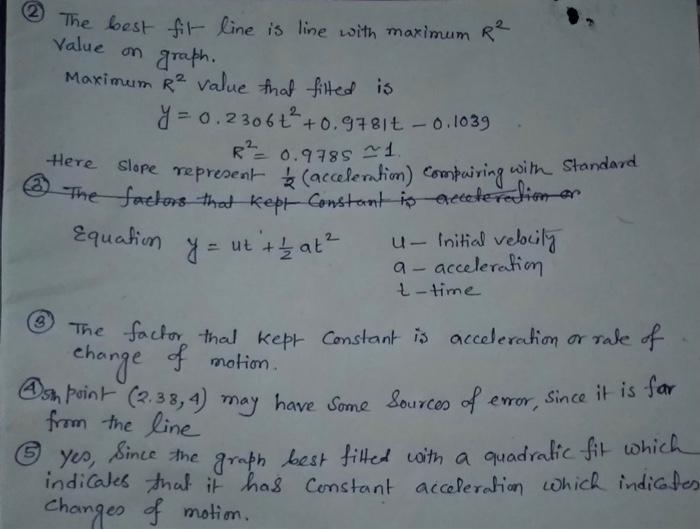 ② The best fit line is line with maximum R²
Value on graph.
Maximum R² value that fitted is
y = 0.2306t² + 0.9781t - 0.1039
R² = 0.9785 ≃ 1.
Here slope represent ½ (acceleration) Compairing with Standard
③ The factors that kept Constant is acceleration or
Equation y = ut + ½ at² u - Initial velocity
a - acceleration
t - time
③ The factor that kept Constant is acceleration or rate of
change of motion.
④ 5th point (2.38, 4) may have Some Sources of error, Since it is far
from the line
⑤ yes, Since the graph best fitted with a quadratic fit which
indicates that it has Constant acceleration which indicates
Changes of motion.